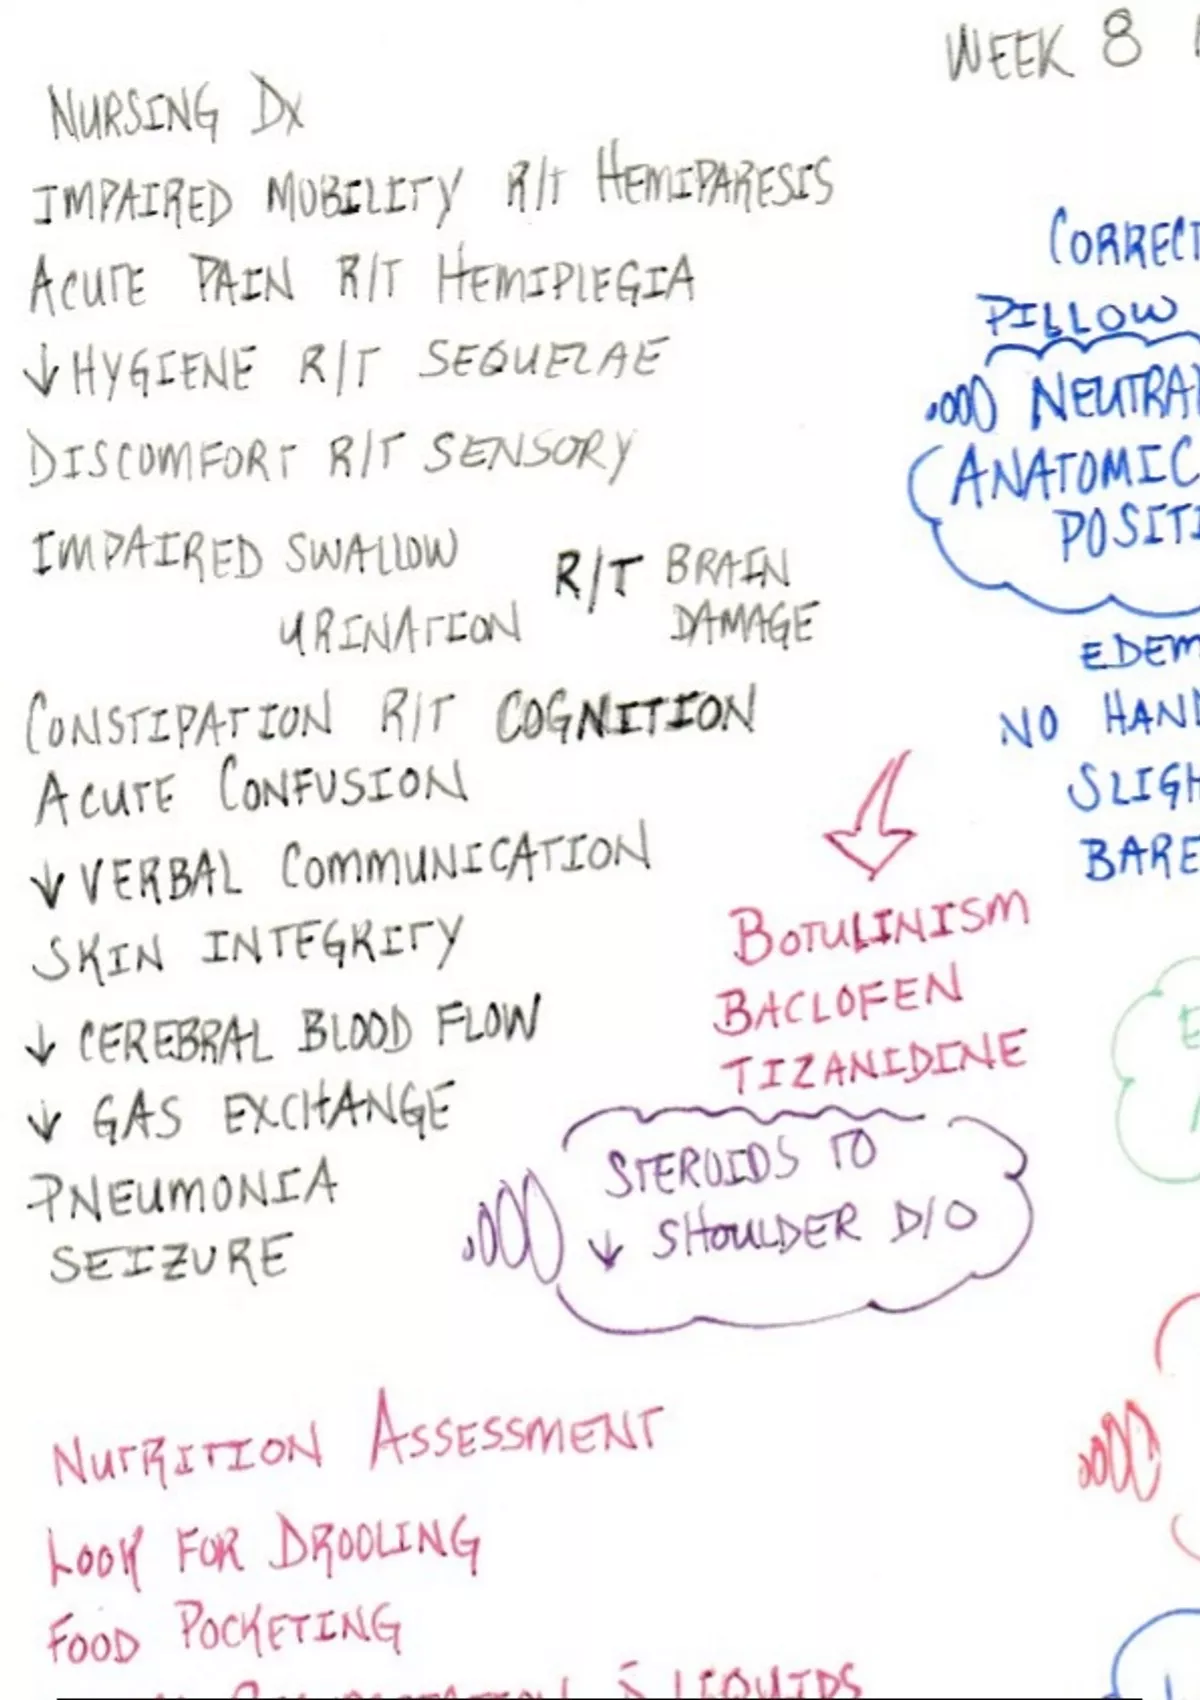 WEEK 8
NURSING DX
IMPAIRED MOBILITY R/T HEMIPARESIS
ACUTE PAIN R/T HEMIPLEGIA
↓ HYGIENE R/T SEQUELAE
DISCOMFORT R/T SENSORY
IMPAIRED SWALLOW
URINATION
R/T BRAIN
DAMAGE
CONSTIPATION R/T COGNITION
ACUTE CONFUSION
↓ VERBAL COMMUNICATION
SKIN INTEGRITY
↓ CEREBRAL BLOOD FLOW
↓ GAS EXCHANGE
PNEUMONIA
SEIZURE
BOTULINISM
BACLOFEN
TIZANIDINE
STEROIDS TO
↓ SHOULDER D/O
CORRECT
PILLOW
NEUTRAL
ANATOMIC
POSITI
EDEM
NO HAN
SLIGH
BARE
NUTRITION ASSESSMENT
LOOK FOR DROOLING
FOOD POCKETING
LIQUIDS